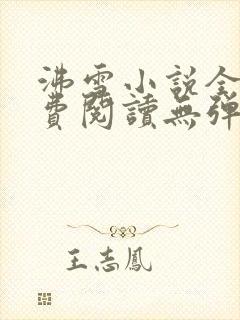 沸雪小说全
費閱讀無彈
王志鳳